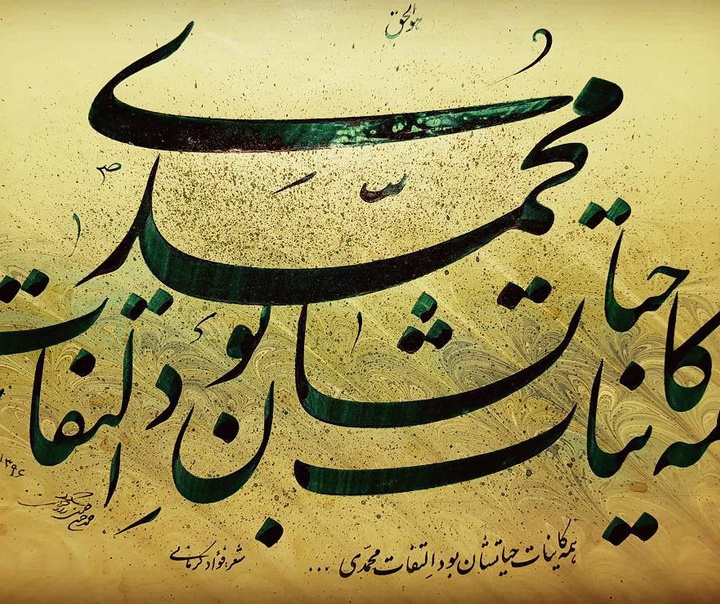 هوالحق
همه کاینات حیاتشان بود التفات محمدی
همه کاینات حیاتشان بود التفات محمدی ...
شعر: فؤاد کرمانی
۱۳۹۶